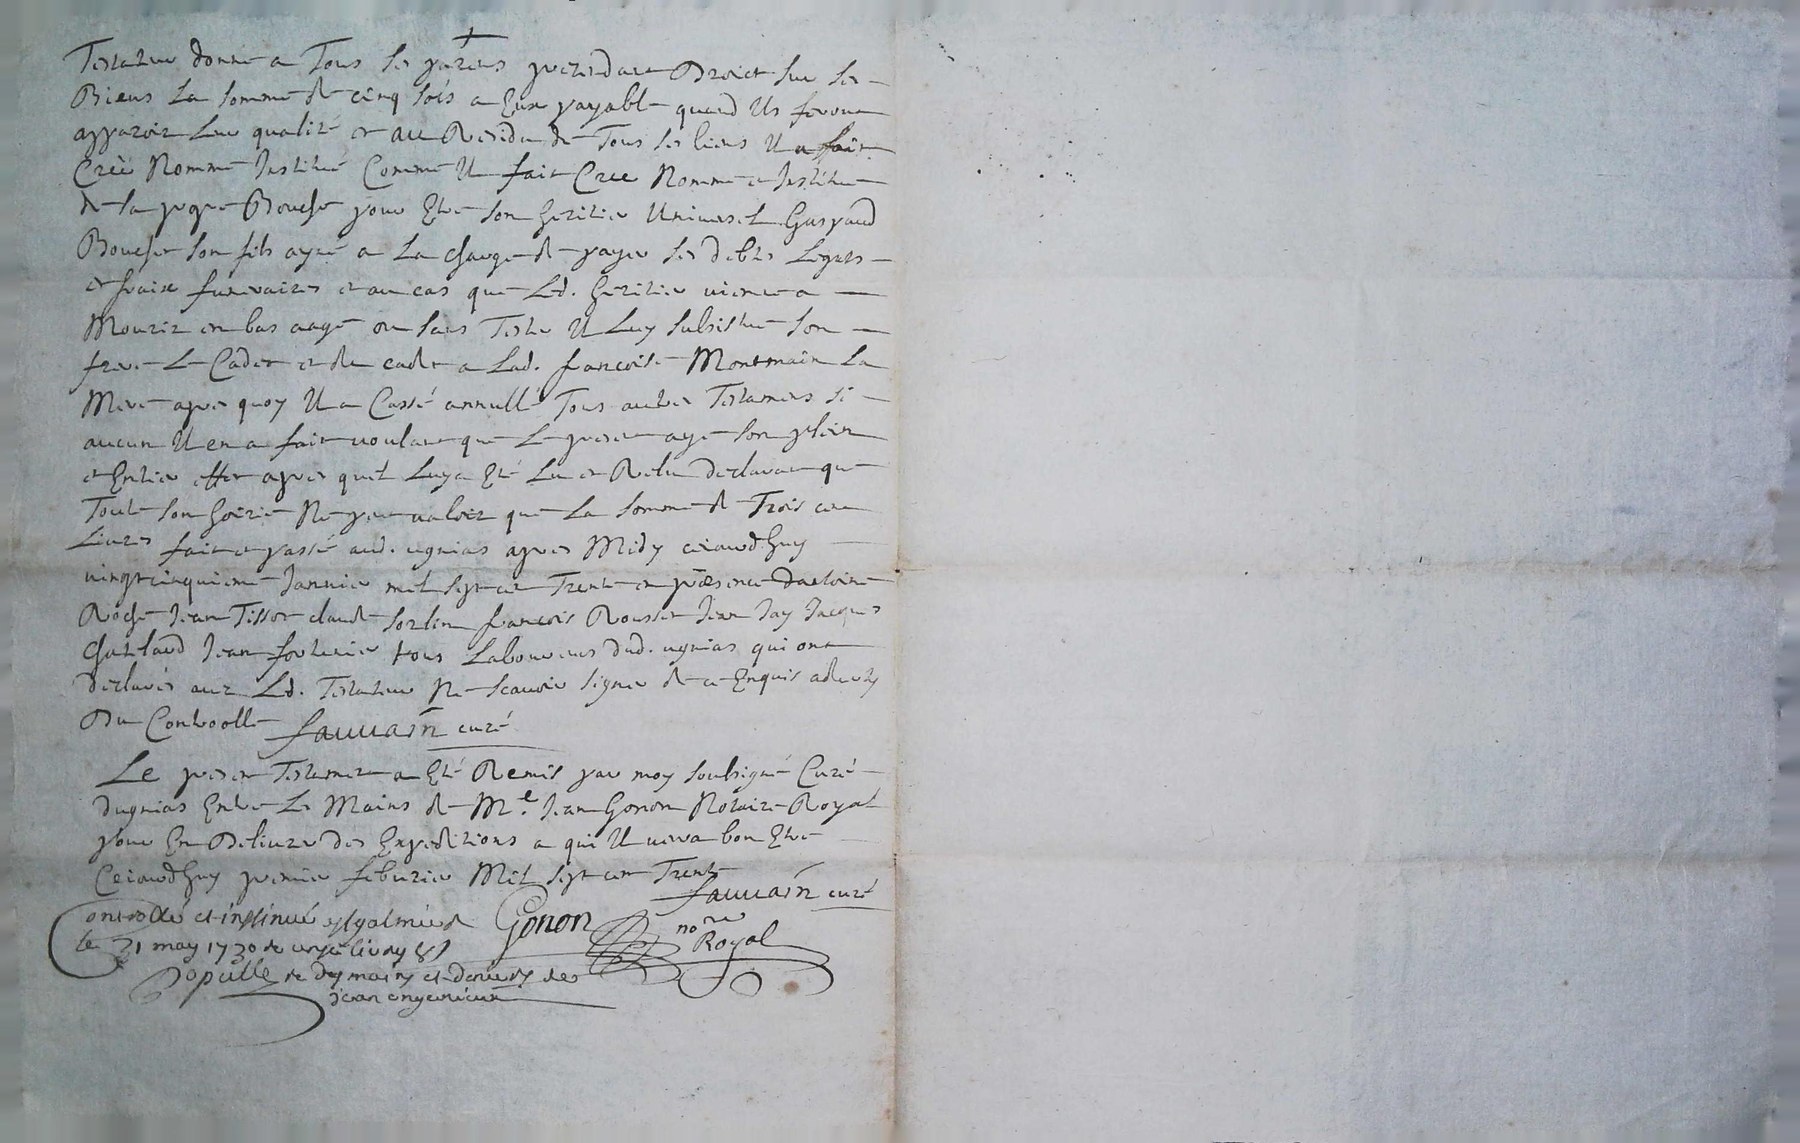 Testateur donne a Tous ses parens pretendant Droict sur ses
Biens La somme de cinq sols a Eux payable quand Ils feront
apparoir Leur qualité et au Residu de Tous ses biens Il a fait
Créé Nommé Institué Comme Il fait Cree Nomme et Institue
de sa propre Bouche pour Etre son heritier Universel Gaspard
Bouchet son fils ayné a La charge de payer ses debtes Legats
et fraix funeraires et au cas que Led. heritier vienne a
Mourir en bas aage ou sans Tester Il Luy substitue son
frere Le Cadet et du cadet a Lad. francoise Montmain La
Mere apres quoy Il a Cassé annullé Tous autres Testamens si
aucun Il en a fait voulant que Le present aye son plein
et Entier effet apres quil Luy a Eté Lu et Relu declarant que
Toute son hoirie Ne peut valoir que La somme de Trois cent
Livres fait et passé aud. ugnias apres Midy ceiourdhuy
vingt cinquieme Janvier mil sept cent Trente en presence dantoine
Roche Jean Tissot claude sorlin francois Rousset Jean Jay Jacques
Chatelard Jean tous Laboureurs dud. ugnias qui ont
declarés avec Led. Testateur Ne scavoir signer de ce Enquis
Du Controolle Sauvain curé
Le present Testament a Eté Remis par moy soubsigné Curé
dugnias Entre Les Mains de Me. Jean Gonon Notaire Royal
pour En Delivrer Des Expeditions a qui Il verra bon Etre
Ceiourdhuy premier febvrier Mil sept cent Trente
Sauvain curé
Controllé et insinué a St galmier Gonon nore Royal
le 31 may 1730 livres
des mains et deniers de
jean